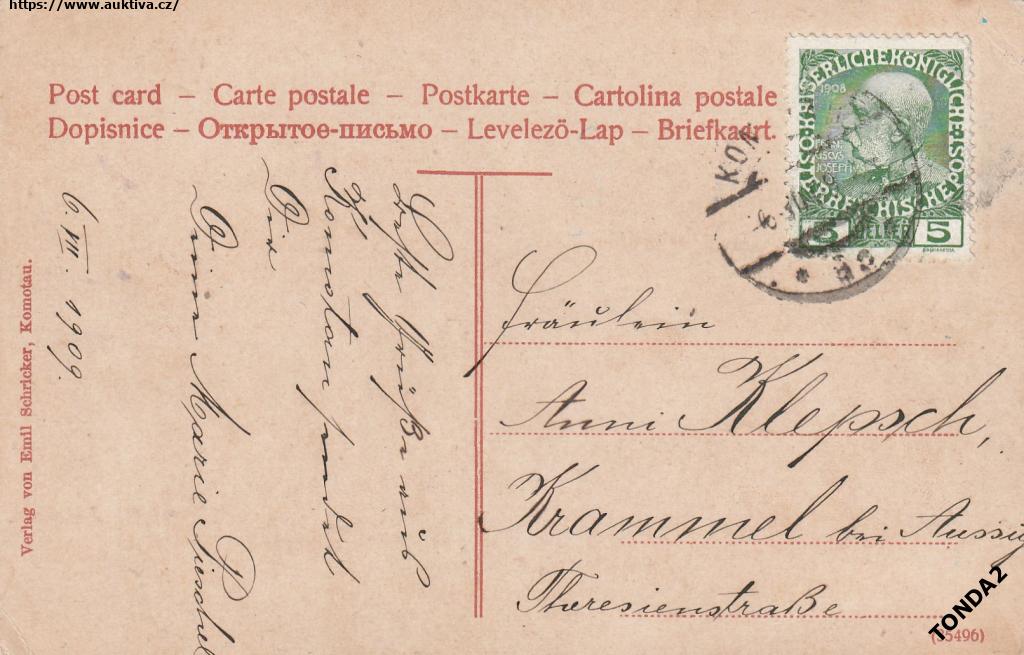 https://www.auktiva.cz/
Post card – Carte postale – Postkarte – Cartolina postale
Dopisnice – Открытое-письмо – Levelező-Lap – Briefkaart.
KAISERLICHE KÖNIGLICHE ÖSTERREICHISCHE
1908
JOSEPH
5 HELLER 5
KOM
Verlag von Emil Schricker, Komotau.
6. VII. 1909.
Beste Grüße aus
Komotau sendet
Dir
Deine Marie
Fräulein
Anni Klepsch,
Krammel bei Aussig
Theresienstraße
(35496)
TONDA2